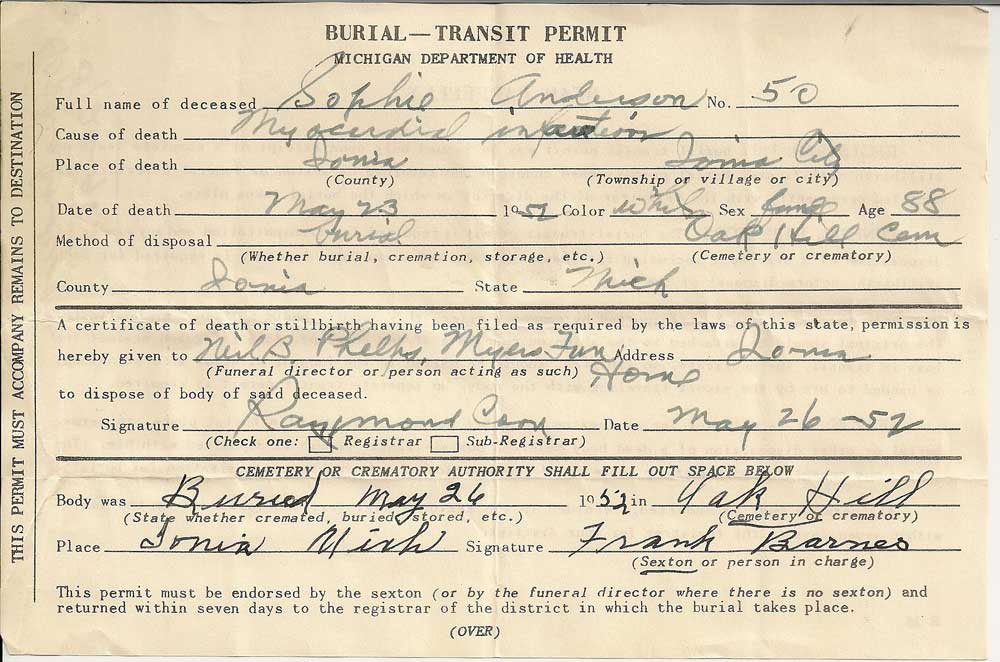 BURIAL—TRANSIT PERMIT
MICHIGAN DEPARTMENT OF HEALTH
Full name of deceased Sophie Anderson No. 50
Cause of death Myocardial infarction
Place of death Ionia Ionia City
(County) (Township or village or city)
Date of death May 23 1952 Color White Sex female Age 88
Method of disposal burial Oak Hill Cem
(Whether burial, cremation, storage, etc.) (Cemetery or crematory)
County Ionia State Mich
A certificate of death or stillbirth having been filed as required by the laws of this state, permission is
hereby given to Neil B. Phelps, Myers Fun Home Address Ionia
(Funeral director or person acting as such)
to dispose of body of said deceased.
Signature Raymond Coon Date May 26-52
(Check one: Registrar Sub-Registrar)
CEMETERY OR CREMATORY AUTHORITY SHALL FILL OUT SPACE BELOW
Body was Buried May 26 1952 in Oak Hill
(State whether cremated, buried, stored, etc.) (Cemetery or crematory)
Place Ionia Mich Signature Frank Barnes
(Sexton or person in charge)
This permit must be endorsed by the sexton (or by the funeral director where there is no sexton) and
returned within seven days to the registrar of the district in which the burial takes place.
(OVER)
THIS PERMIT MUST ACCOMPANY REMAINS TO DESTINATION